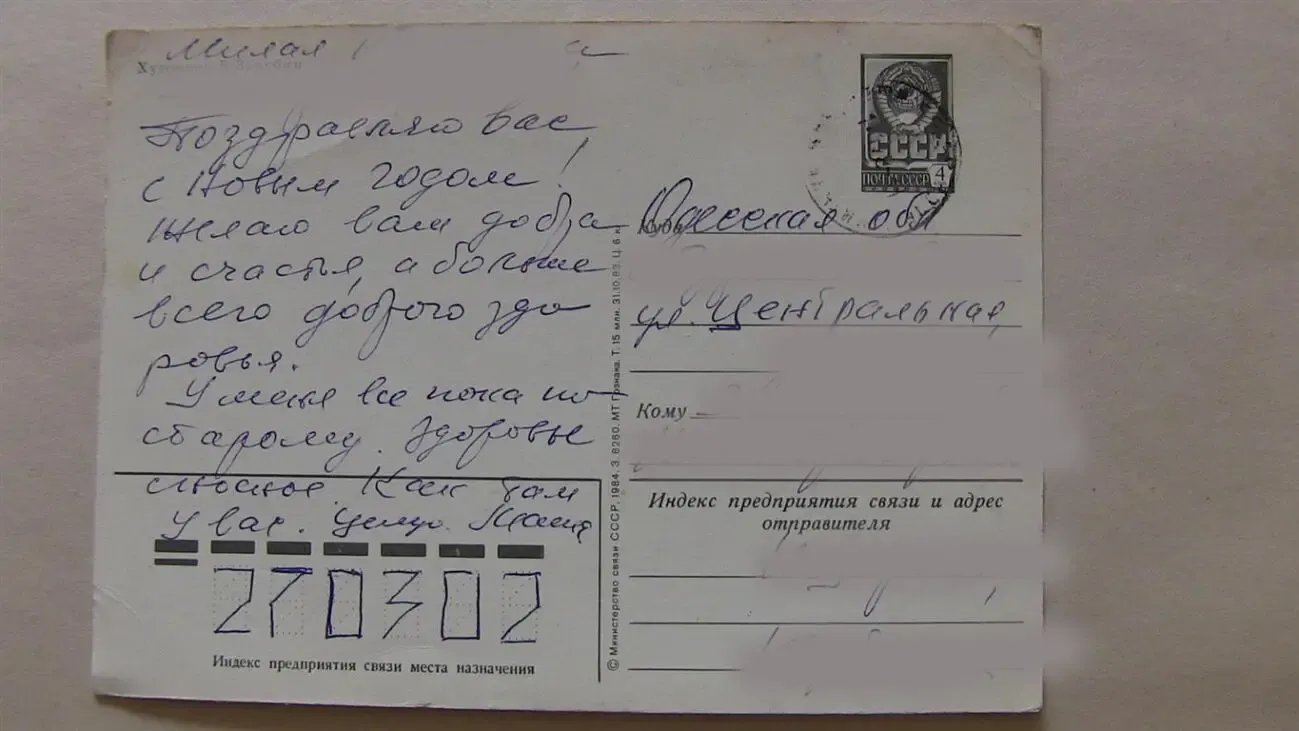 Милая
Художник
Поздравляю вас
с Новым годом!
Желаю вам добра
и счастья, а больше
всего доброго здо
ровья.
У меня все пока по-
старому. Здоровье
сносное. Как там
у вас. Целую.
270302
Индекс предприятия связи места назначения
© Министерство связи СССР, 1984. З. 6260. МТ Гознака. Т. 15 млн. 31.10.83. Ц. 6 к.
СССР
ПОЧТА СССР 4
Куда Одесская обл
ул. Центральная,
Кому
Индекс предприятия связи и адрес
отправителя